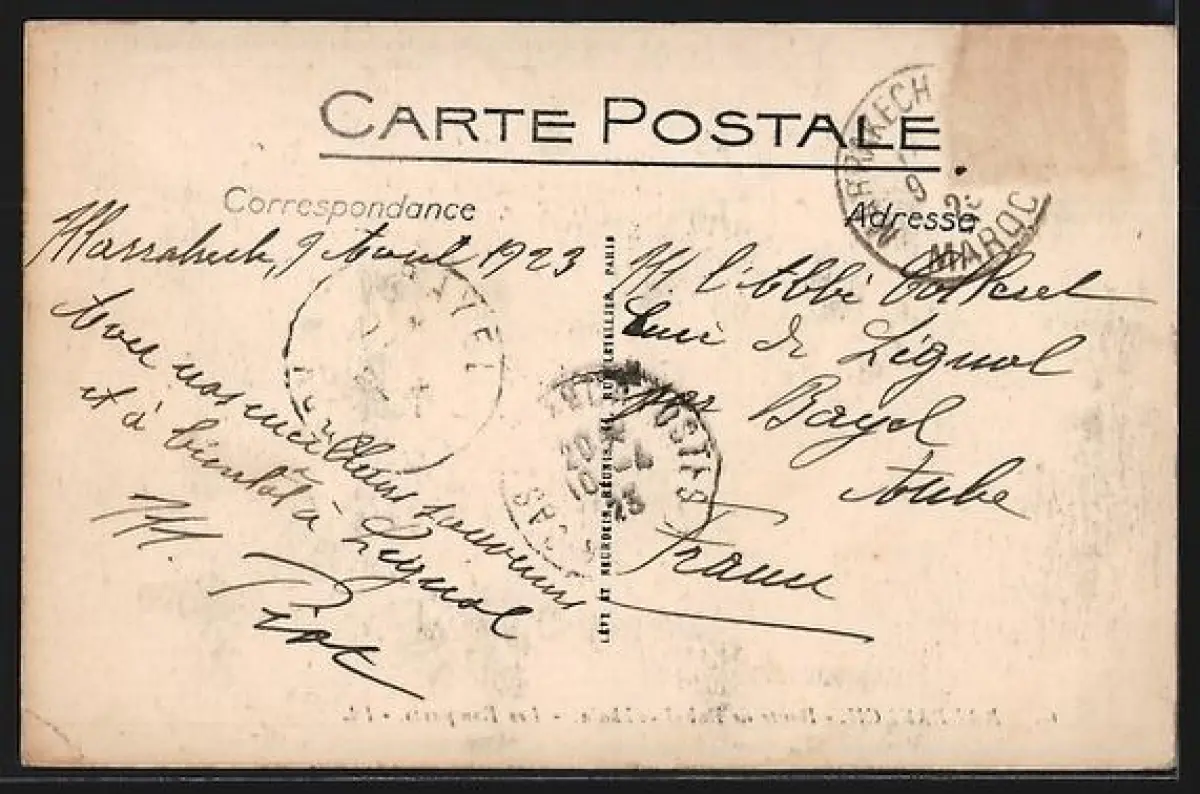 CARTE POSTALE
Correspondance
Adresse
MARRAKECH
9
MAROC
Marrakech, 9 Avril 1923
Avec nos meilleurs souvenirs
et à bientôt à Lignol
M. Piot
M. l'Abbé
Curé de Lignol
par Bayel
Aube
France
BAYEL
POSTES
LÉVY ET NEURDEIN RÉUNIS, 44, RUE LETELLIER, PARIS